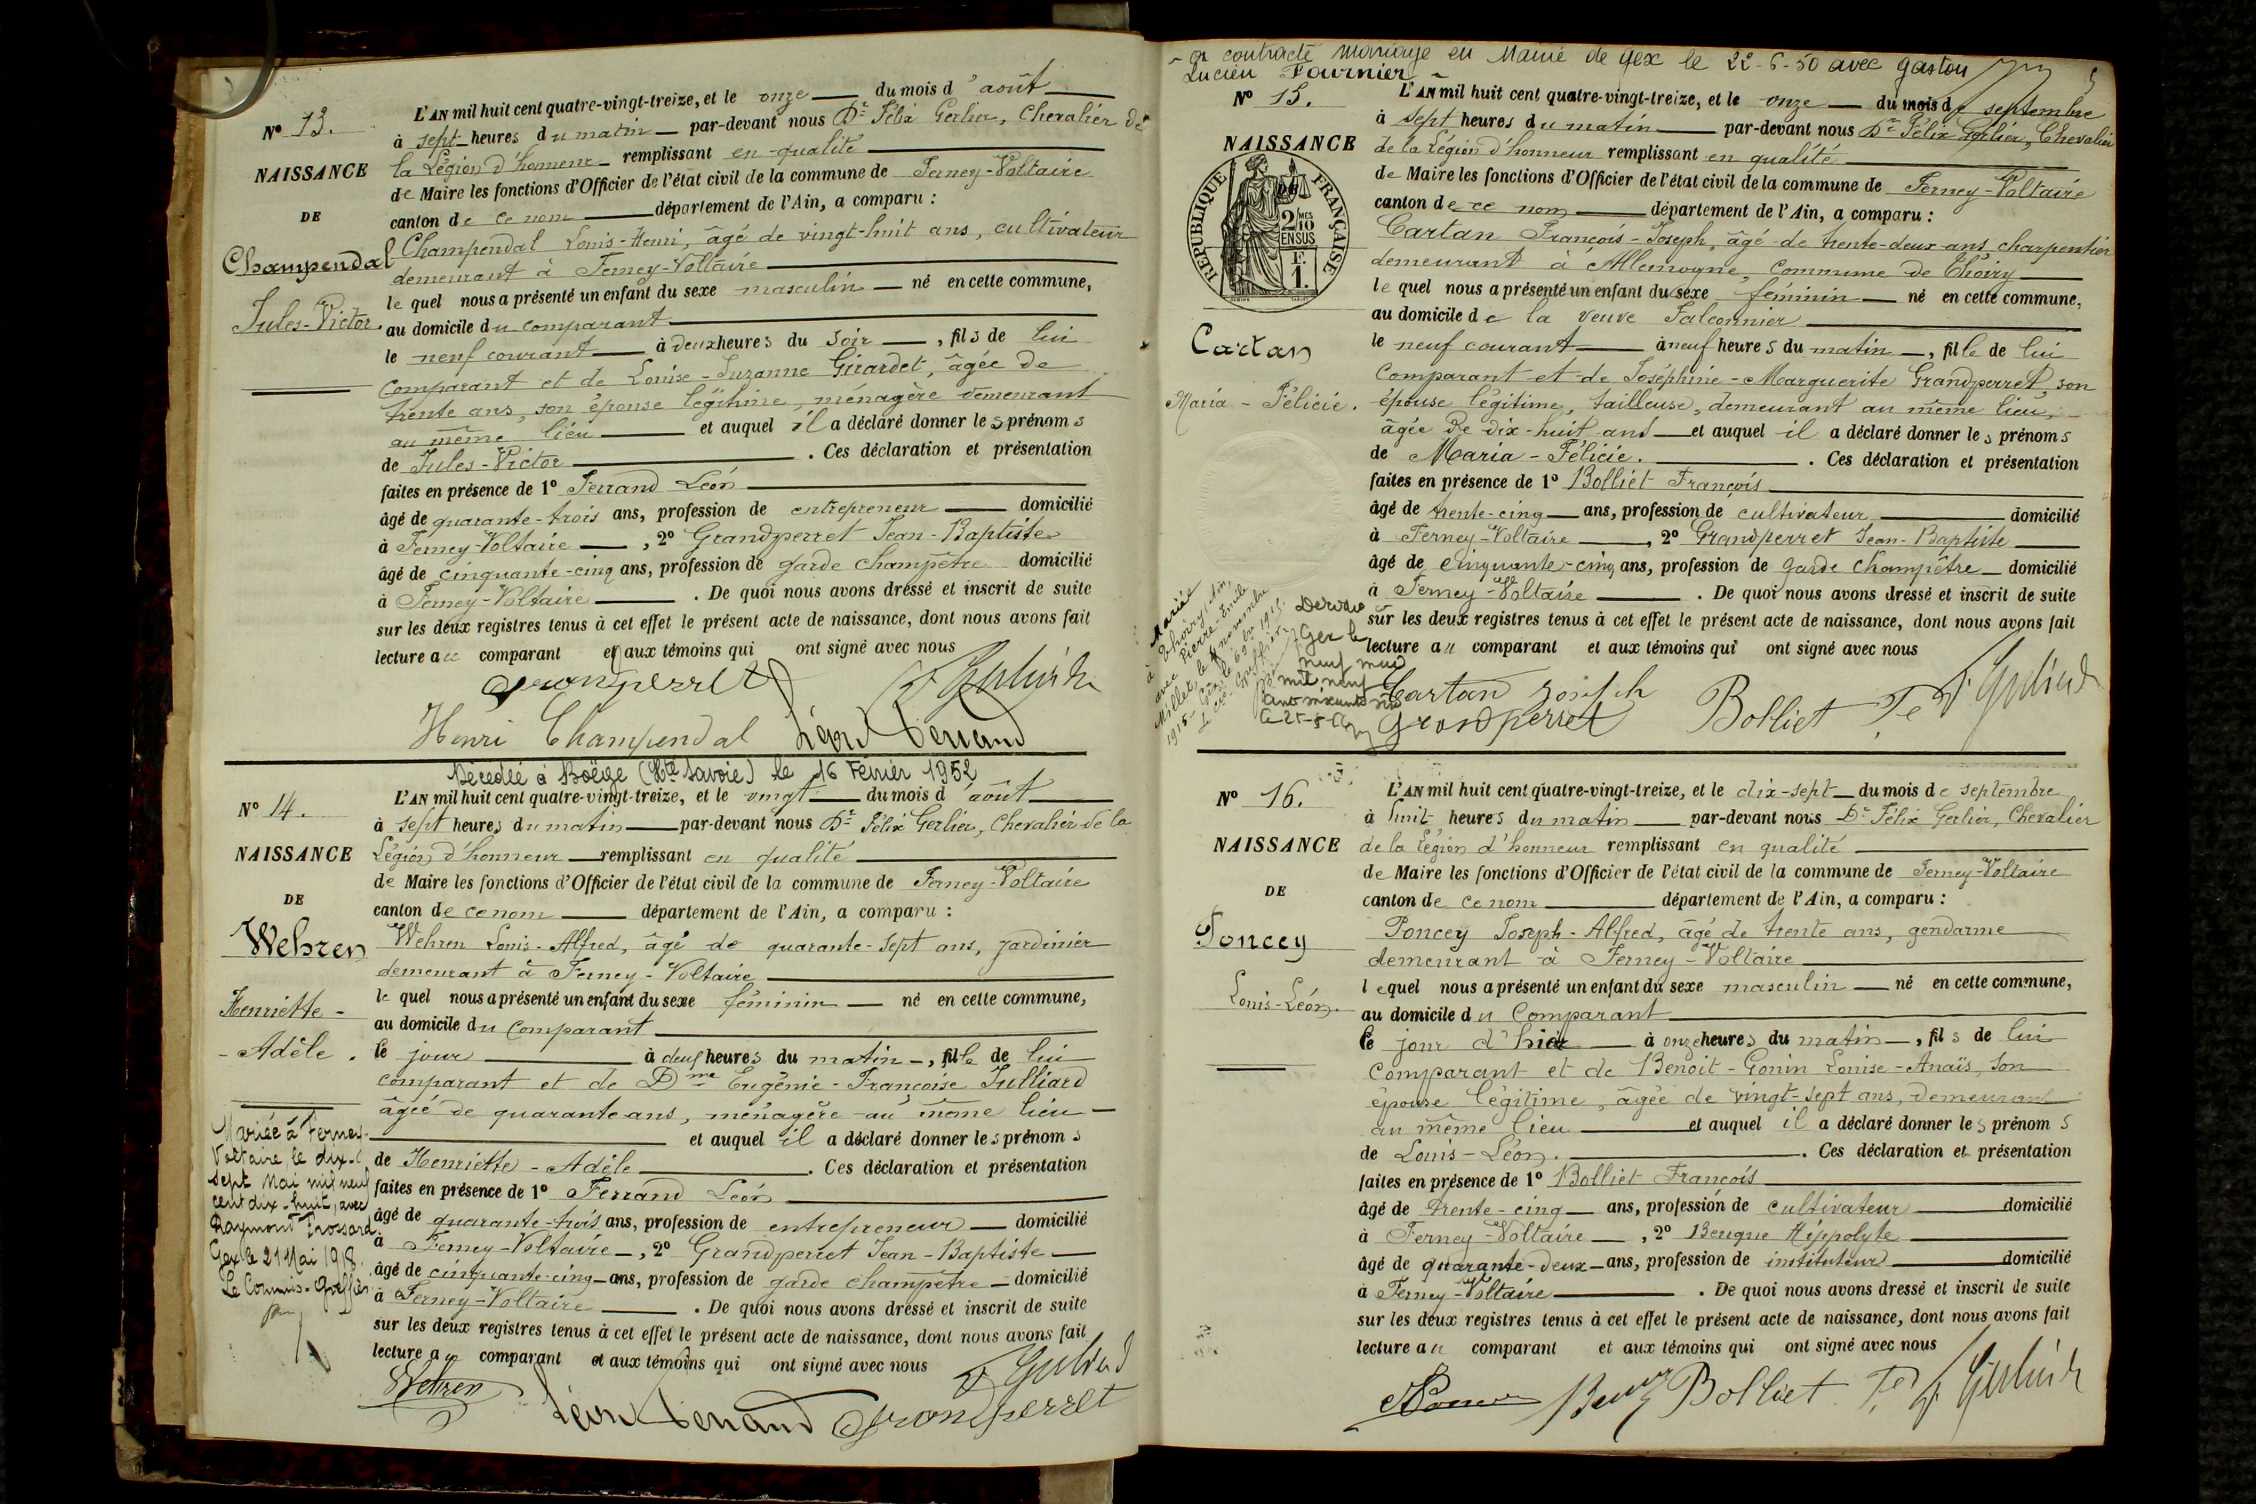 Nº 13.
NAISSANCE
DE
Champendal
Jules-Victor.
L'AN mil huit cent quatre-vingt-treize, et le onze du mois d'août
à sept heures du matin par-devant nous Dr Félix Gerlier, Chevalier de
la Légion d'honneur remplissant en qualité
de Maire les fonctions d'Officier de l'état civil de la commune de Ferney-Voltaire
canton de ce nom département de l'Ain, a comparu :
Champendal Louis-Henri, âgé de vingt-huit ans, cultivateur
demeurant à Ferney-Voltaire
le quel nous a présenté un enfant du sexe masculin né en cette commune,
au domicile du comparant
le neuf courant à deux heures du soir, fils de lui
comparant et de Louise-Suzanne Girardet, âgée de
trente ans, son épouse légitime, ménagère demeurant
au même lieu et auquel il a déclaré donner les prénoms
de Jules-Victor. Ces déclaration et présentation
faites en présence de 1º Ferrand Léon
âgé de quarante-trois ans, profession de entrepreneur domicilié
à Ferney-Voltaire, 2º Grandperret Jean-Baptiste
âgé de cinquante-cinq ans, profession de garde champêtre domicilié
à Ferney-Voltaire. De quoi nous avons dressé et inscrit de suite
sur les deux registres tenus à cet effet le présent acte de naissance, dont nous avons fait
lecture au comparant et aux témoins qui ont signé avec nous
Grandperret
Henri Champendal Léon Ferrand
Décédée à Boëge (Hte Savoie) le 16 Février 1952
Nº 14.
NAISSANCE
DE
Wehren
Henriette-
-Adèle.
L'AN mil huit cent quatre-vingt-treize, et le vingt du mois d'août
à sept heures du matin par-devant nous Dr Félix Gerlier, Chevalier de la
Légion d'honneur remplissant en qualité
de Maire les fonctions d'Officier de l'état civil de la commune de Ferney-Voltaire
canton de ce nom département de l'Ain, a comparu :
Wehren Louis-Alfred, âgé de quarante-sept ans, jardinier
demeurant à Ferney-Voltaire
le quel nous a présenté un enfant du sexe féminin né en cette commune,
au domicile du comparant
le jour à deux heures du matin, fille de lui
comparant et de Dme Eugénie-Françoise Julliard
âgée de quarante ans, ménagère au même lieu
et auquel il a déclaré donner les prénoms
de Henriette-Adèle. Ces déclaration et présentation
faites en présence de 1º Ferrand Léon
âgé de quarante-trois ans, profession de entrepreneur domicilié
à Ferney-Voltaire, 2º Grandperret Jean-Baptiste
âgé de cinquante-cinq ans, profession de garde champêtre domicilié
à Ferney-Voltaire. De quoi nous avons dressé et inscrit de suite
sur les deux registres tenus à cet effet le présent acte de naissance, dont nous avons fait
lecture au comparant et aux témoins qui ont signé avec nous
Wehren Léon Ferrand Grandperret
Mariée à Ferney-
Voltaire, le dix-
sept Mai mil neuf
cent dix-huit, avec
Raymond Frossard
Gex le 21 Mai 1918.
Le Commis-Greffier
a contracté mariage en Mairie de Gex le 22-6-50 avec Gaston
Lucien Fournier
Nº 15.
NAISSANCE
DE
RÉPUBLIQUE FRANÇAISE
2/10MES
EN SUS
1F.
Cartan
Maria-Félicie.
L'AN mil huit cent quatre-vingt-treize, et le onze du mois de septembre
à sept heures du matin par-devant nous Dr Félix Gerlier, Chevalier
de la Légion d'honneur remplissant en qualité
de Maire les fonctions d'Officier de l'état civil de la commune de Ferney-Voltaire
canton de ce nom département de l'Ain, a comparu :
Cartan François-Joseph, âgé de trente-deux ans, charpentier
demeurant à Allemogne, commune de Thoiry
le quel nous a présenté un enfant du sexe féminin né en cette commune,
au domicile de la veuve Falconnier
le neuf courant à neuf heures du matin, fille de lui
comparant et de Joséphine-Marguerite Grandperret, son
épouse légitime, tailleuse, demeurant au même lieu,
âgée de dix-huit ans et auquel il a déclaré donner les prénoms
de Maria-Félicie. Ces déclaration et présentation
faites en présence de 1º Bolliet François
âgé de trente-cinq ans, profession de cultivateur domicilié
à Ferney-Voltaire, 2º Grandperret Jean-Baptiste
âgé de cinquante-cinq ans, profession de garde champêtre domicilié
à Ferney-Voltaire. De quoi nous avons dressé et inscrit de suite
sur les deux registres tenus à cet effet le présent acte de naissance, dont nous avons fait
lecture au comparant et aux témoins qui ont signé avec nous
Cartan Joseph
Grandperret Bolliet Fs
Mariée
à Thoiry, Ain,
avec Pierre-Emile
Millet le novembre
1915.
Nº 16.
NAISSANCE
DE
Poncey
Louis-Léon.
L'AN mil huit cent quatre-vingt-treize, et le dix-sept du mois de septembre
à huit heures du matin par-devant nous Dr Félix Gerlier, Chevalier
de la Légion d'honneur remplissant en qualité
de Maire les fonctions d'Officier de l'état civil de la commune de Ferney-Voltaire
canton de ce nom département de l'Ain, a comparu :
Poncey Joseph-Alfred, âgé de trente ans, gendarme
demeurant à Ferney-Voltaire
lequel nous a présenté un enfant du sexe masculin né en cette commune,
au domicile du Comparant
le jour d'hier à onze heures du matin, fils de lui
comparant et de Benoit-Gonin Louise-Anaïs, son
épouse légitime, âgée de vingt-sept ans, demeurant
au même lieu et auquel il a déclaré donner les prénoms
de Louis-Léon. Ces déclaration et présentation
faites en présence de 1º Bolliet François
âgé de trente-cinq ans, profession de cultivateur domicilié
à Ferney-Voltaire, 2º Bengue Hippolyte
âgé de quarante-deux ans, profession de instituteur domicilié
à Ferney-Voltaire. De quoi nous avons dressé et inscrit de suite
sur les deux registres tenus à cet effet le présent acte de naissance, dont nous avons fait
lecture au comparant et aux témoins qui ont signé avec nous
Bolliet Fs